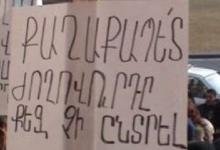 ՔԱՂԱՔԱՊԵ՛Տ
ԺՈՂՈՎՈՒՐԴԸ
ՔԵԶ ՉԻ ԸՆՏՐԵԼ